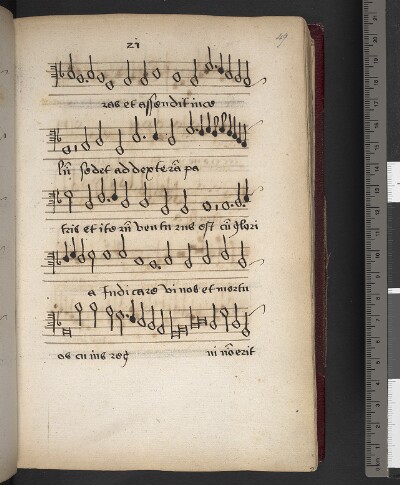 zi
49
ras et assendit in ce
lū sedet ad dexterā pa
tris et ite rū ven tu rus est cū glori
a Iudicare vi nos et mortu
os cu ius reg ni nō erit